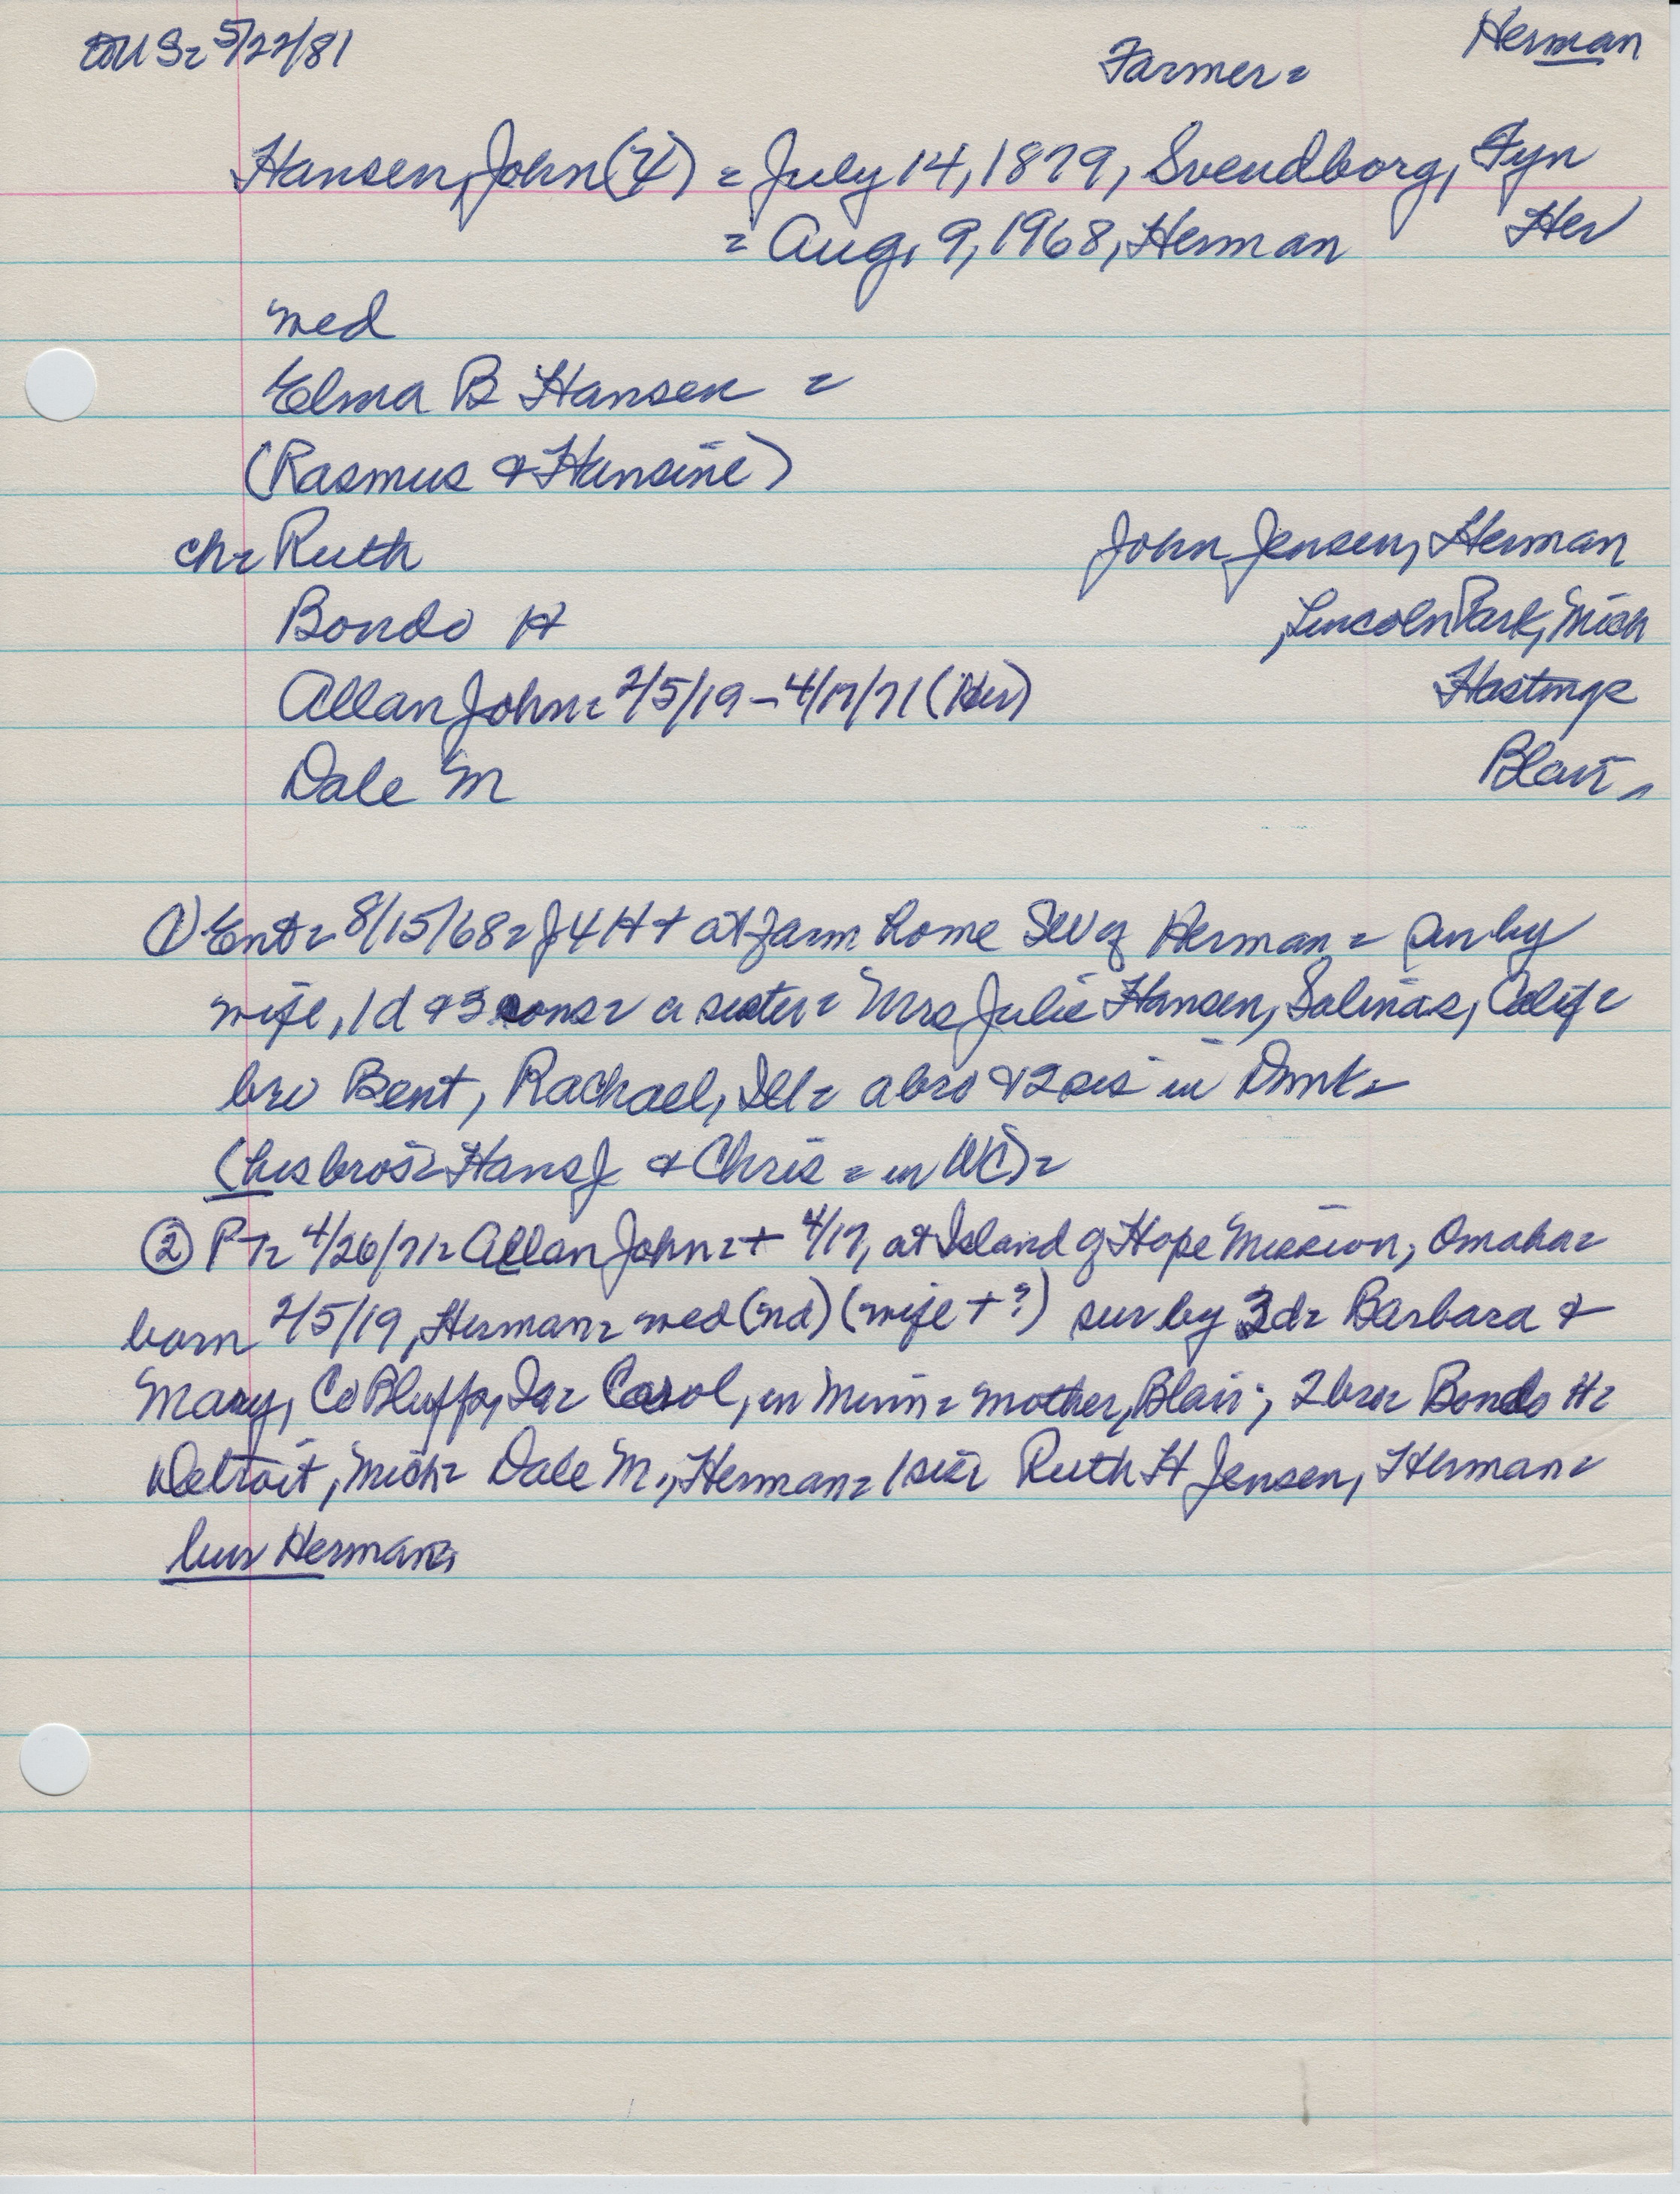 5/22/81 Farmer = Herman
Hansen, John (4) = July 14, 1879, Svendborg, Fyn
= Aug. 9, 1968, Herman Her
med
Elma B Hansen =
(Rasmus & Hansine)
ch= Ruth John Jensen, Herman
Bondo H , Lincoln Park, Mich
Allan John = 2/5/19 - 4/17/71 (Her) Hastings
Dale M Blair,
① Ent = 8/15/68 = J4H + at farm home SW of Herman = sur by
wife, 1 d & 3 sons = a sister = Mrs Julie Hansen, Salinas, Calif =
bro Bent, Rachael, Ill = a bro & 2 sis in Dmk =
(his bros = Hans J & Chris = in WC) =
② PT = 4/26/71 = Allan John = + 4/17, at Island of Hope Mission, Omaha =
born 2/5/19, Herman = med (nd) (wife + ?) sur by 3 d = Barbara &
Mary, Co Bluffs, Ia = Carol, in Minn = mother, Blair; 2 bro = Bondo H =
Detroit, Mich = Dale M., Herman = 1 sis = Ruth H Jensen, Herman =
bur Herman =